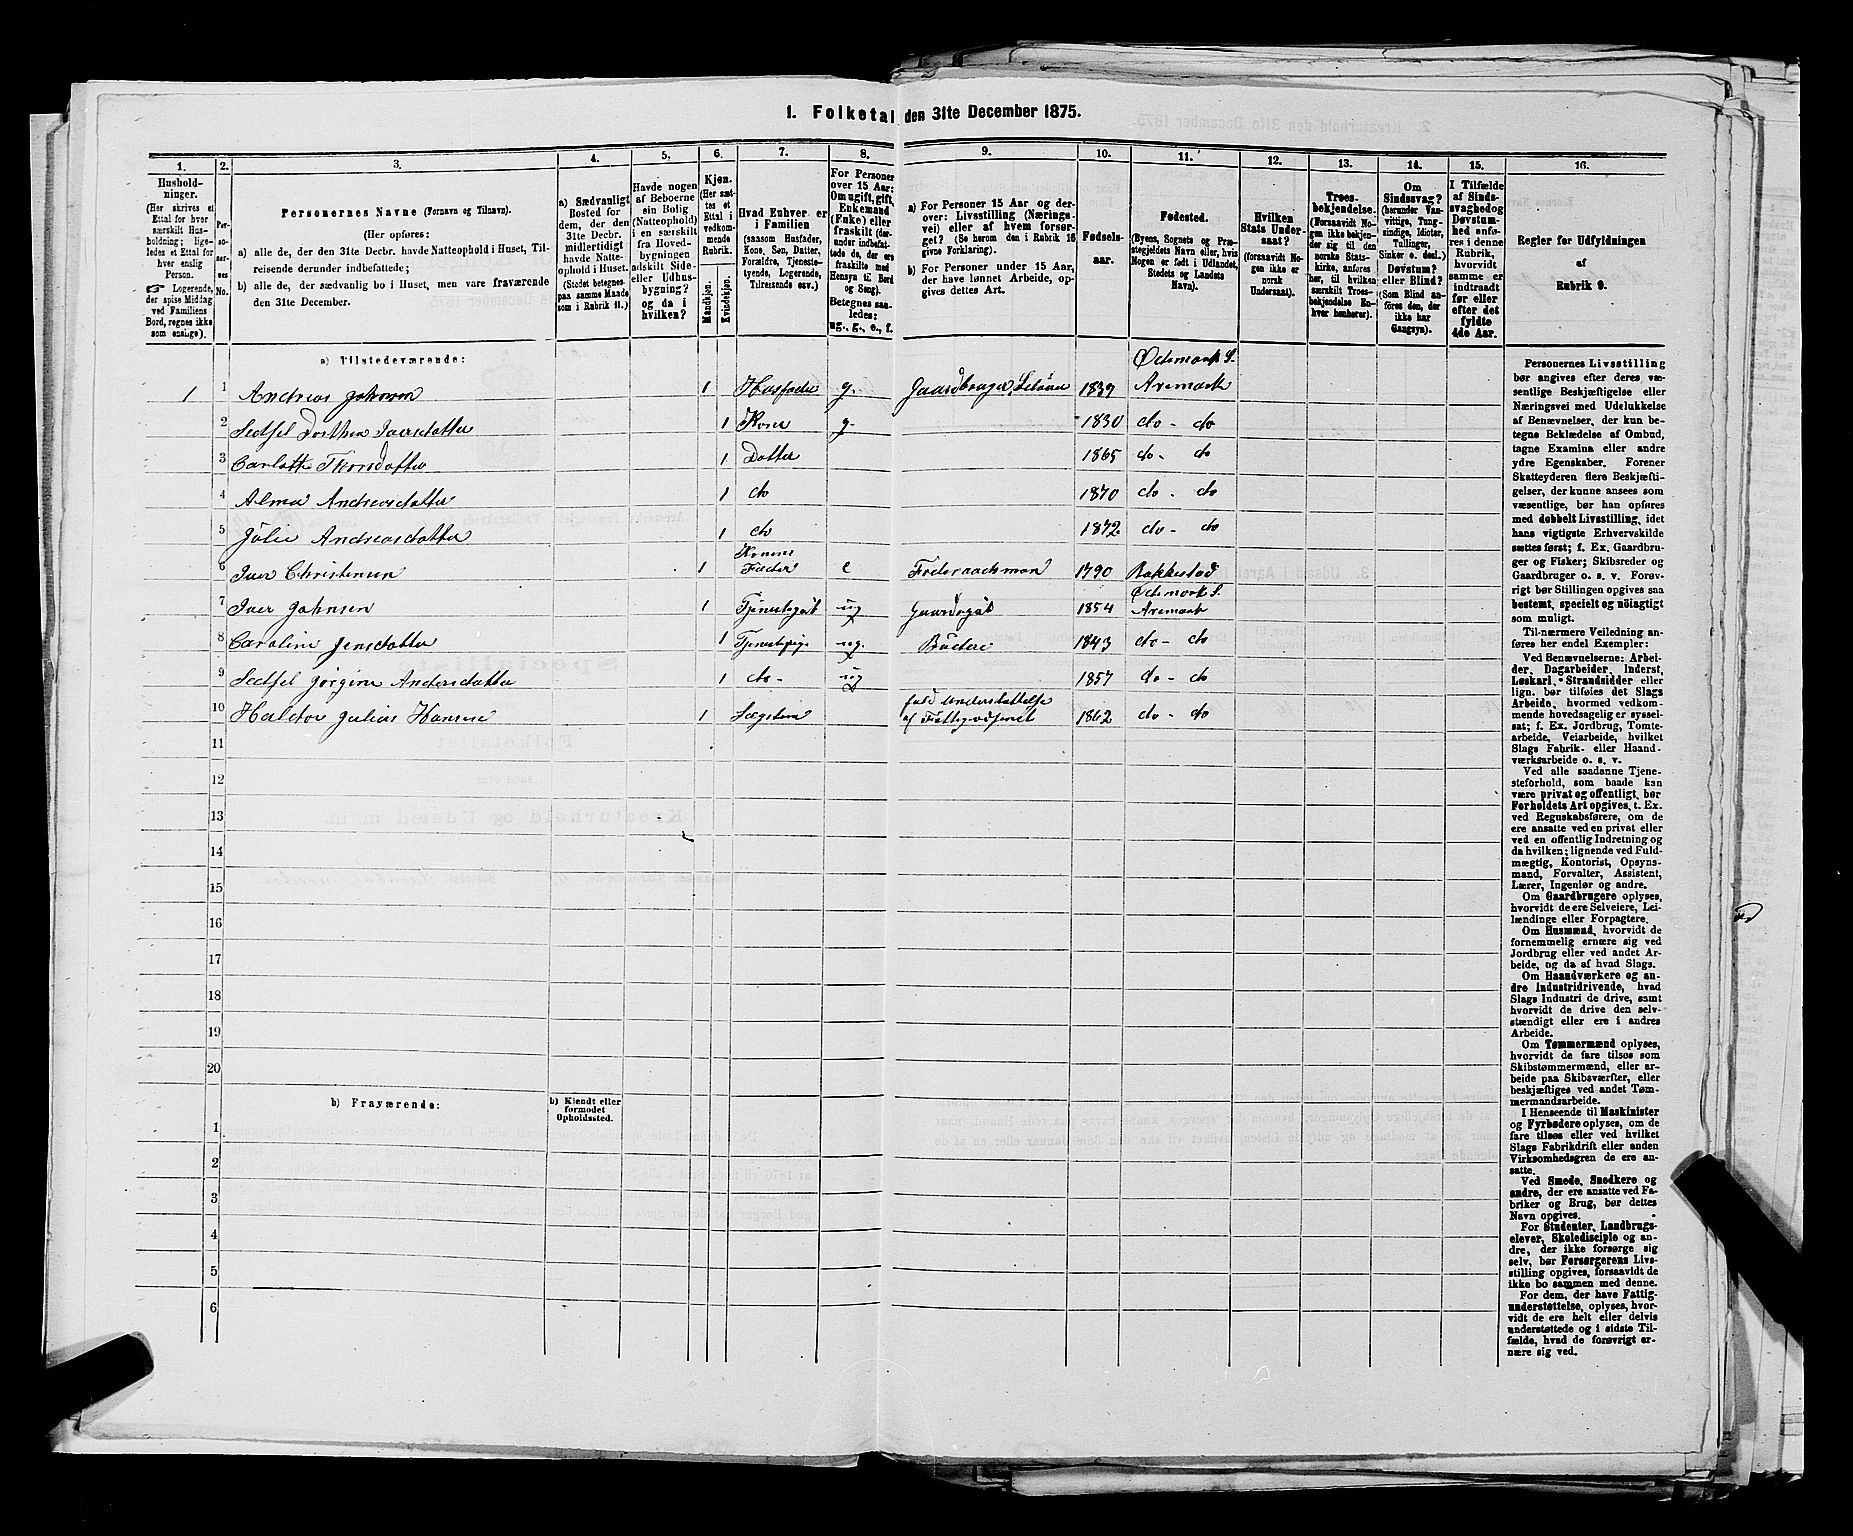 1. Folketal den 31te December 1875.
1. 2. 3. 4. 5. 6. 7. 8. 9. 10. 11. 12. 13. 14. 15. 16.
Hushold-
ninger.
(Her skrives et
Ettal for hver
særskilt Hus-
holdning; lige-
ledes et Ettal for
hver enslig
Person.
Logerende,
der spise Middag
ved Familiens
Bord, regnes ikke
som enslige).
Per-
so-
ner-
nes
No.
Personernes Navne (Fornavn og Tilnavn).
(Her opføres:
a) alle de, der den 31te Decbr. havde Natteophold i Huset, Til-
reisende derunder indbefattede;
b) alle de, der sædvanlig bo i Huset, men vare fraværende
den 31te December.
a) Sædvanligt
Bosted for
dem, der den
31te Decbr.
midlertidigt
havde Natte-
ophold i Huset.
(Stedet betegnes
paa samme Maade
som i Rubrik 11.)
Havde nogen
af Beboerne
sin Bolig
(Natteophold)
i en særskilt
fra Hoved-
bygningen
adskilt Side-
eller Udhus-
bygning?
og da i
hvilken?
Kjøn.
(Her sæt-
tes et
Ettal i
vedkom-
mende
Rubrik.
Mandkjøn.
Kvindekjøn.
Hvad Enhver er
i Familien
(saasom Husfader,
Kone, Søn, Datter,
Forældre, Tjeneste-
tyende, Logerende,
Tilreisende osv.)
For Personer
over 15 Aar:
Om ugift, gift,
Enkemand
(Enke) eller
fraskilt (der-
under indbefat-
tede de, der ere
fraskilte med
Hensyn til Bord
og Seng).
Betegnes saa-
ledes:
ug., g., e., f.
a) For Personer 15 Aar og der-
over: Livsstilling (Nærings-
vei) eller af hvem forsør-
get? (Se herom den i Rubrik 16
givne Forklaring).
b) For Personer under 15 Aar,
der have lønnet Arbeide, op-
gives dettes Art.
Fødsels-
aar.
Fødested.
(Byens, Sognets og Præ-
stegjeldets Navn eller, hvis
Nogen er født i Udlandet,
Stedets og Landets
Navn).
Hvilken
Stats Under-
saat?
(forsaavidt No-
gen ikke er
norsk
Undersaat).
Troes-
bekjendelse.
(Forsaavidt No-
gen ikke bekjen-
der sig til den
norske Stats-
kirke, anføres
her, til hvilken
særskilt Troes-
bekjendelse En-
hver henhører).
Om
Sindssvag?
(herunder Van-
vittige, Tung-
sindige, Idioter,
Tullinger,
Sinker o. desl.)
Døvstum?
eller Blind?
(Som Blind an-
føres den, der
ikke har
Gangsyn).
I Tilfælde
af Sinds-
svaghed og
Døvstum-
hed anfø-
res i denne
Rubrik,
hvorvidt
samme er
indtraadt
før eller
efter det
fyldte
4de Aar.
Regler for Udfyldningen
af
Rubrik 9.
a) Tilstedeværende:
Ødemark S.
1 1 Andreas Johnsen 1 Husfader g. Gaardbruger Seleier 1839 Aremark
2 Sedsel Dorthea Iversdatter 1 Kone g. 1830 do - do
3 Carlotte Thorsdatter 1 Datter 1865 do - do
4 Alma Andreasdatter 1 do 1870 do - do
5 Julie Andreasdatter 1 do 1872 do - do
6 Iver Christensen 1 Konens Fader e Føderaadsmand 1790 Rakkestad
Ødemark S.
7 Iver Johnsen 1 Tjenestegut ug Gaardsgut 1854 Aremark
8 Caroline Jensdatter 1 Tjenestepige ug. Budeie 1843 do - do
9 Sedsel Jørgine Andersdatter 1 do - ug 1857 do - do
10 Haldor Julius Hansen 1 Lægslem fuld Understøttelse af Fattigvæsenet 1862 do - do
11
12
13
14
15
16
17
18
19
20
b) Fraværende:
b) Kjendt eller
formodet
Opholdssted.
1
2
3
4
5
6
Personernes Livsstilling
bør angives efter deres væ-
sentlige Beskjæftigelse eller
Næringsvei med Udelukkelse
af Benævnelser, der kun be-
tegne Beklædelse af Ombud,
tagne Examina eller andre
ydre Egenskaber. Forener
Skatteyderen flere Beskjæfti-
gelser, der kunne ansees som
væsentlige, bør han opføres
med dobbelt Livsstilling, idet
hans vigtigste Erhvervskilde
sættes først; f. Ex. Gaardbru-
ger og Fisker; Skibsreder og
Gaardbruger o. s. v. Forøv-
rigt bør Stillingen opgives saa
bestemt, specielt og nøiagtigt
som muligt.
Til nærmere Veiledning an-
føres her endel Exempler:
Ved Benævnelserne: Arbei-
der, Dagarbeider, Inderst,
Løskarl, Strandsidder eller
lign. bør tilføies det Slags
Arbeide, hvormed vedkom-
mende hovedsagelig er syssel-
sat; f. Ex. Jordbrug, Tomte-
arbeide, Veiarbeide, hvilket
Slags Fabrik- eller Haand-
værksarbeide o. s. v.
Ved alle saadanne Tjene-
steforhold, som baade kan
være privat og offentligt, bør
Forholdets Art opgives, t. Ex.
ved Regnskabsførere, om de
ere ansatte ved en privat eller
ved en offentlig Indretning og
da hvilken; lignende ved Fuld-
mægtig, Kontorist, Opsyns-
mand, Forvalter, Assistent,
Lærer, Ingeniør og andre.
Om Gaardbrugere oplyses,
hvorvidt de ere Selveiere, Lei-
lændinge eller Forpagtere.
Om Husmænd, hvorvidt de
fornemmelig ernære sig ved
Jordbrug eller ved andet Ar-
beide, og da af hvad Slags.
Om Haandværkere og an-
dre Industridrivende, hvad
Slags Industri de drive, samt
hvorvidt de drive den selv-
stændigt eller ere i andres
Arbeide.
Om Tømmermænd oplyses,
hvorvidt de fare tilsøs som
Skibstømmermænd, eller ar-
beide paa Skibsværfter, eller
beskjæftiges ved andet Tøm-
mermandsarbeide.
I Henseende til Maskinister
og Fyrbødere oplyses, om de
fare tilsøs eller ved hvilket
Slags Fabrikdrift eller anden
Virksomhedsgren de ere an-
satte.
Ved Smede, Snedkere og
andre, der ere ansatte ved Fa-
briker og Brug, bør dettes
Navn opgives.
For Studenter, Landbrugs-
elever, Skoledisciple og an-
dre, der ikke forsørge sig
selv, bør Forsørgerens Livs-
stilling opgives, forsaavidt de
ikke bo sammen med denne.
For dem, der have Fattig-
understøttelse, oplyses, hvor-
vidt de ere helt eller delvis
understøttede og i sidste Til-
fælde, hvad de forøvrigt er-
nære sig ved.